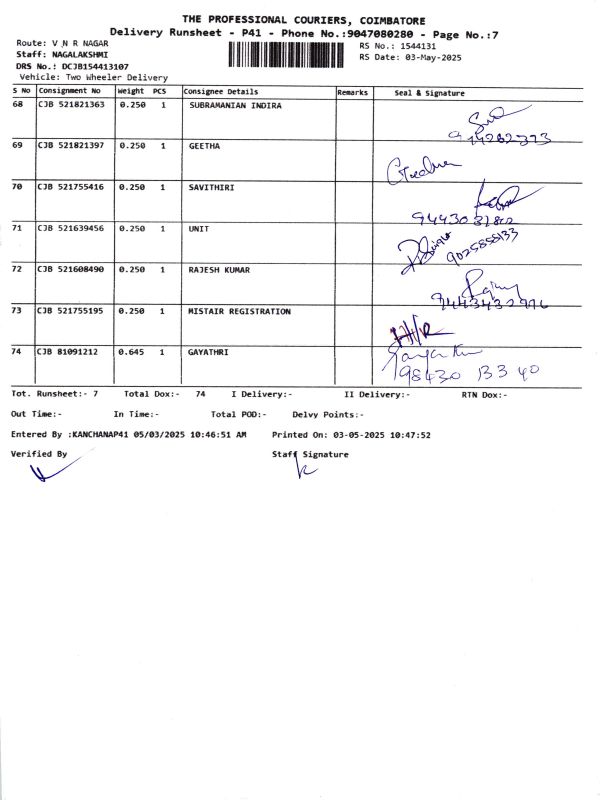 THE PROFESSIONAL COURIERS, COIMBATORE
Delivery Runsheet - P41 - Phone No.:9047080280 - Page No.:7
Route: V N R NAGAR
Staff: NAGALAKSHMI
DRS No.: DCJB154413107
Vehicle: Two Wheeler Delivery
RS No.: 1544131
RS Date: 03-May-2025
S No Consignment No Weight PCS Consignee Details Remarks Seal & Signature
68 CJB 521821363 0.250 1 SUBRAMANIAN INDIRA
69 CJB 521821397 0.250 1 GEETHA
70 CJB 521755416 0.250 1 SAVITHIRI
71 CJB 521639456 0.250 1 UNIT
9025858133
72 CJB 521608490 0.250 1 RAJESH KUMAR
73 CJB 521755195 0.250 1 MISTAIR REGISTRATION
74 CJB 81091212 0.645 1 GAYATHRI
98430 133 40
Tot. Runsheet:- 7 Total Dox:- 74 I Delivery:- II Delivery:- RTN Dox:-
Out Time:- In Time:- Total POD:- Delvy Points:-
Entered By :KANCHANAP41 05/03/2025 10:46:51 AM Printed On: 03-05-2025 10:47:52
Verified By Staff Signature